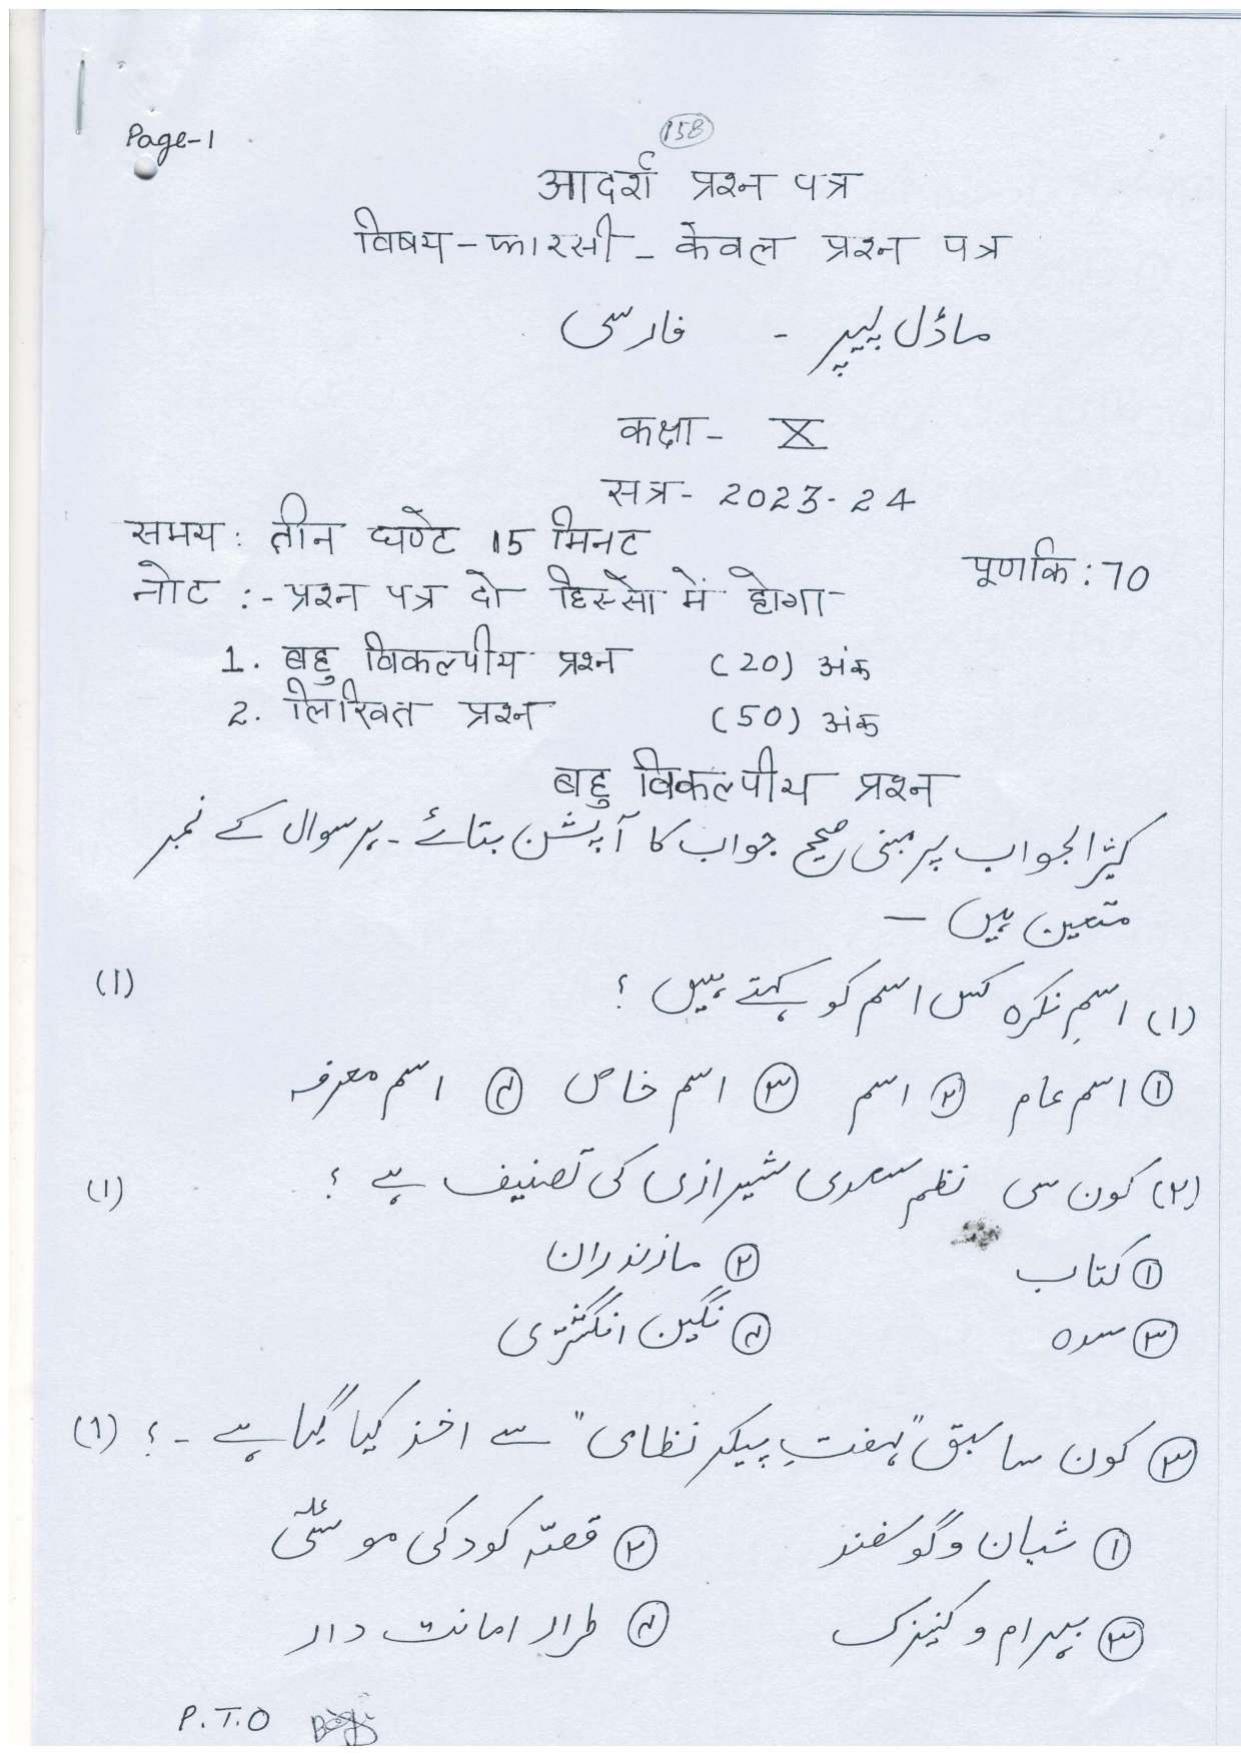 Page-1
158
आदर्श प्रश्न पत्र
विषय - फारसी - केवल प्रश्न पत्र
ماڈل پیپر - فارسی
कक्षा - X
सत्र - 2023-24
समय : तीन घण्टे 15 मिनट
पूर्णांक : 70
नोट :- प्रश्न पत्र दो हिस्सों में होगा
1. बहु विकल्पीय प्रश्न (20) अंक
2. लिखित प्रश्न (50) अंक
बहु विकल्पीय प्रश्न
کثیر الجواب پر مبنی صحیح جواب کا آپشن بتائے - ہر سوال کے نمبر
متعین ہیں —
(۱) اسمِ نکرہ کس اسم کو کہتے ہیں ؟ (1)
① اسم عام ② اسم ③ اسم خاص ④ اسم معرفہ
(۲) کون سی نظم سعدی شیرازی کی تصنیف ہے ؟ (1)
① کتاب ② مازندران
③ سدہ ④ نگین انگشتری
③ کون سا سبق "ہفتِ پیکر نظامی" سے اخذ کیا گیا ہے - ؟ (1)
① شبان و گوسفند ② قصّہ کودکی موسیٰؑ
③ بہرام و کنیزک ④ طرار امانت دار
P.T.O